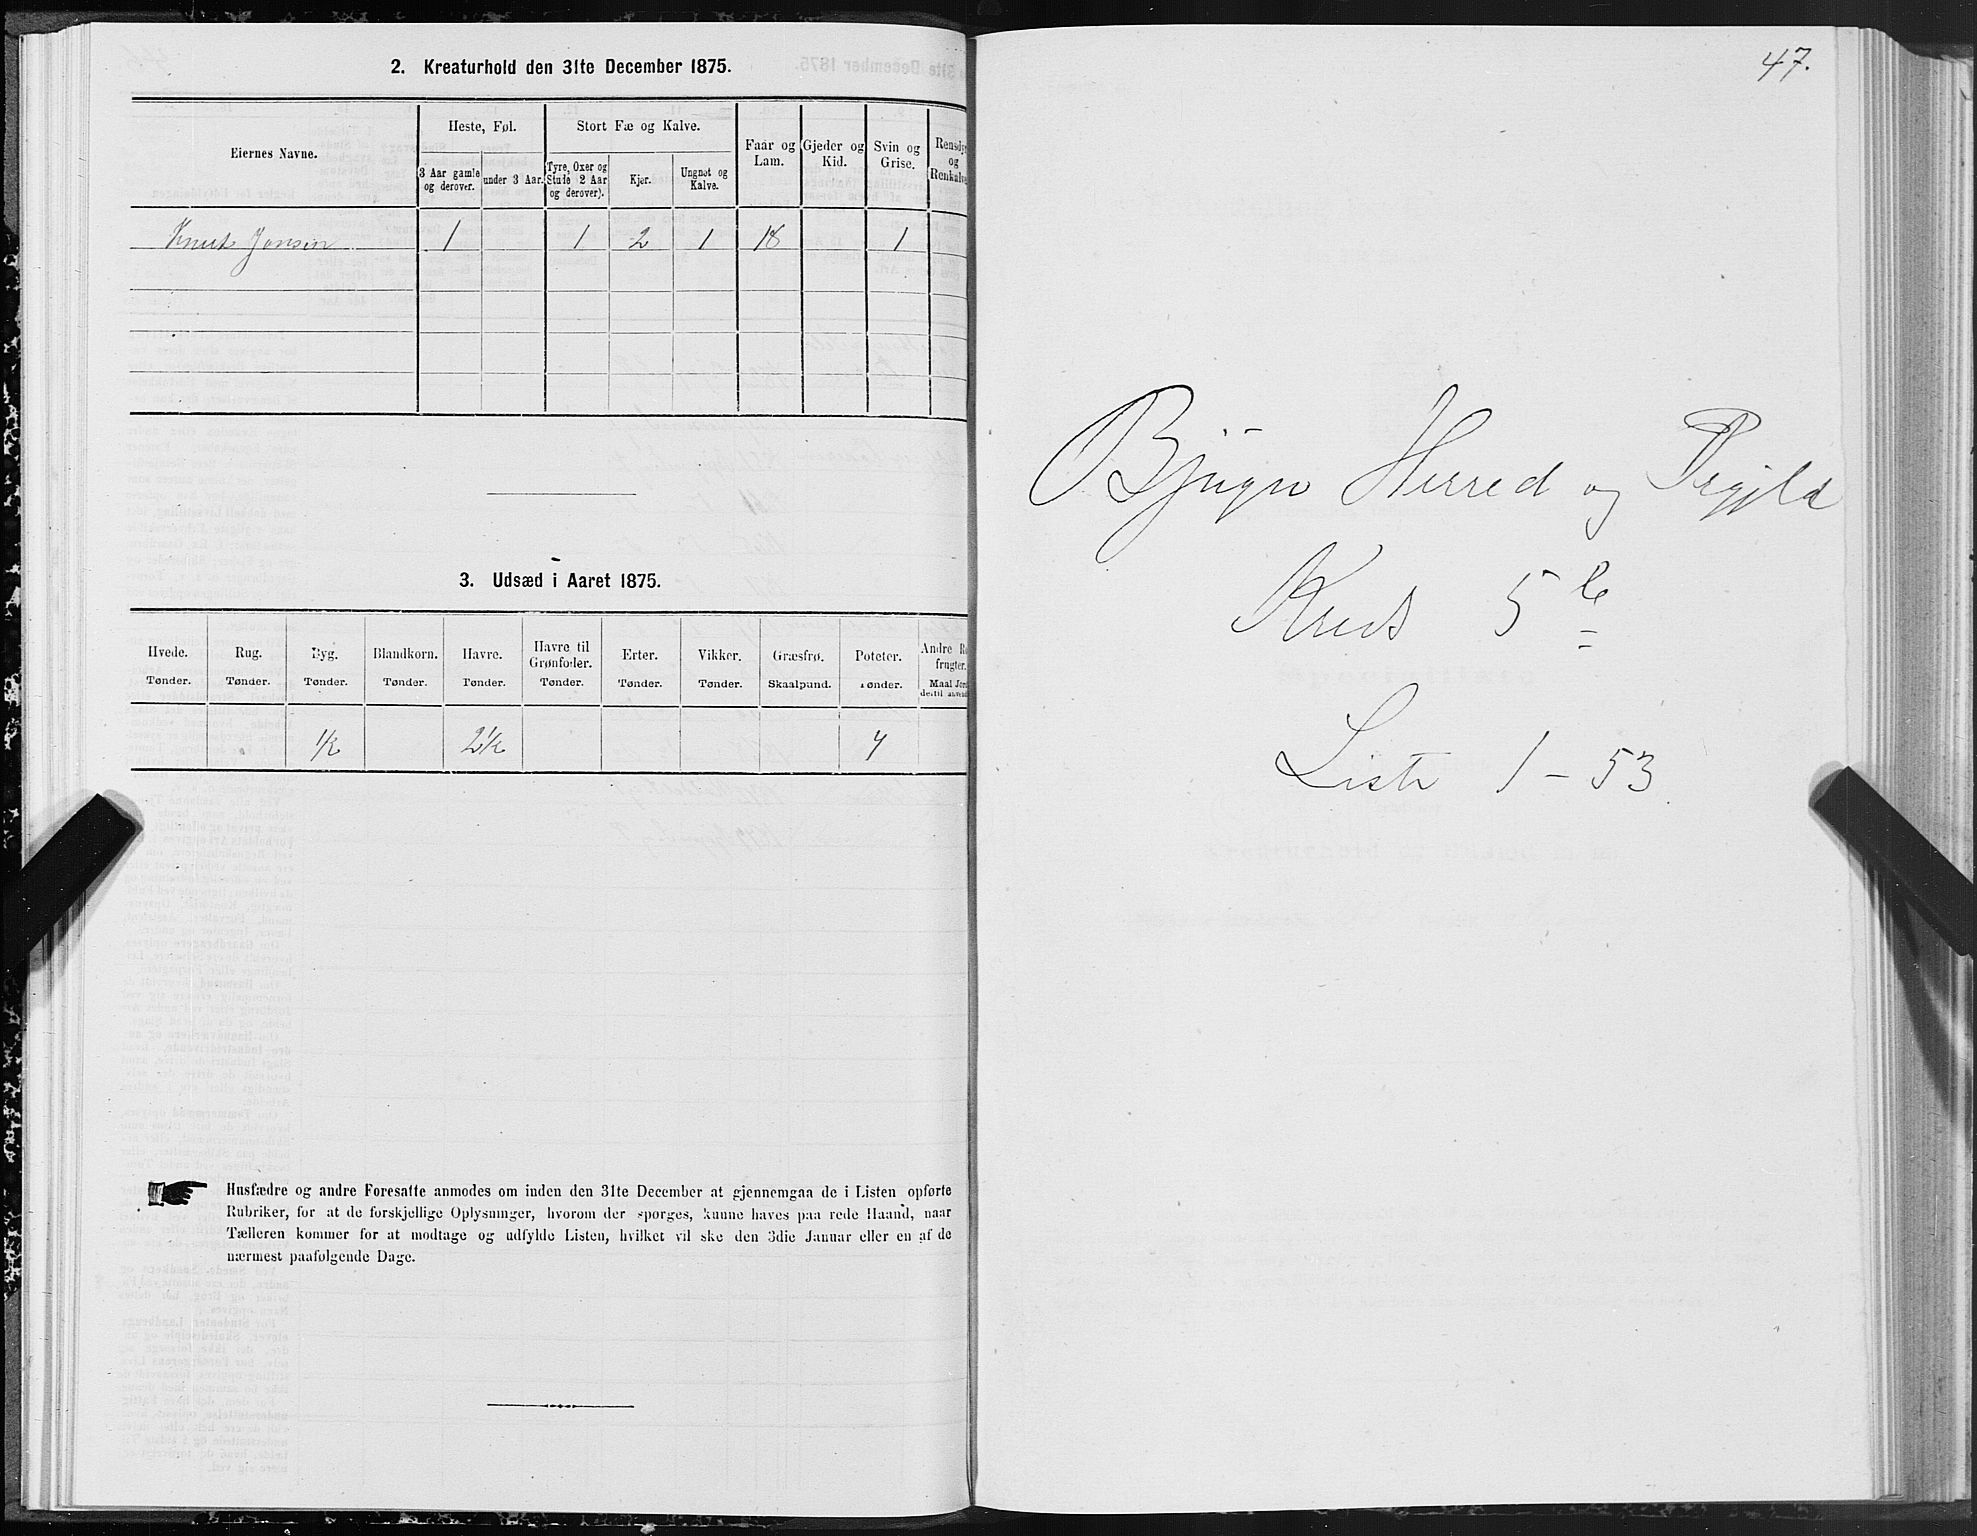 2. Kreaturhold den 31te December 1875.
Eiernes Navne.
Heste, Føl.
3 Aar gamle og derover.
under 3 Aar.
Stort Fæ og Kalve.
Tyre, Oxer og Stude (2 Aar og derover).
Kjør.
Ungnøt og Kalve.
Faar og Lam.
Gjeder og Kid.
Svin og Grise.
Rensdyr og Renkalve
Knut Jonsen 1 1 2 1 18 1
3. Udsæd i Aaret 1875.
Hvede. Rug. Byg. Blandkorn. Havre. Havre til Grønfoder. Erter. Vikker. Græsfrø. Poteter. Andre Ro frugter.
Tønder. Tønder. Tønder. Tønder. Tønder. Tønder. Tønder. Tønder. Skaalpund. Tønder. Maal Jord dertil anvend
1/2 2 1/2 4
Husfædre og andre Foresatte anmodes om inden den 31te December at gjennemgaa de i Listen opførte
Rubriker, for at de forskjellige Oplysninger, hvorom der spørges, kunne haves paa rede Haand, naar
Tælleren kommer for at modtage og udfylde Listen, hvilket vil ske den 3die Januar eller en af de
nærmest paafølgende Dage.
47.
Bjugn Herred og Prgjld
Kreds 5te
Liste 1 - 53